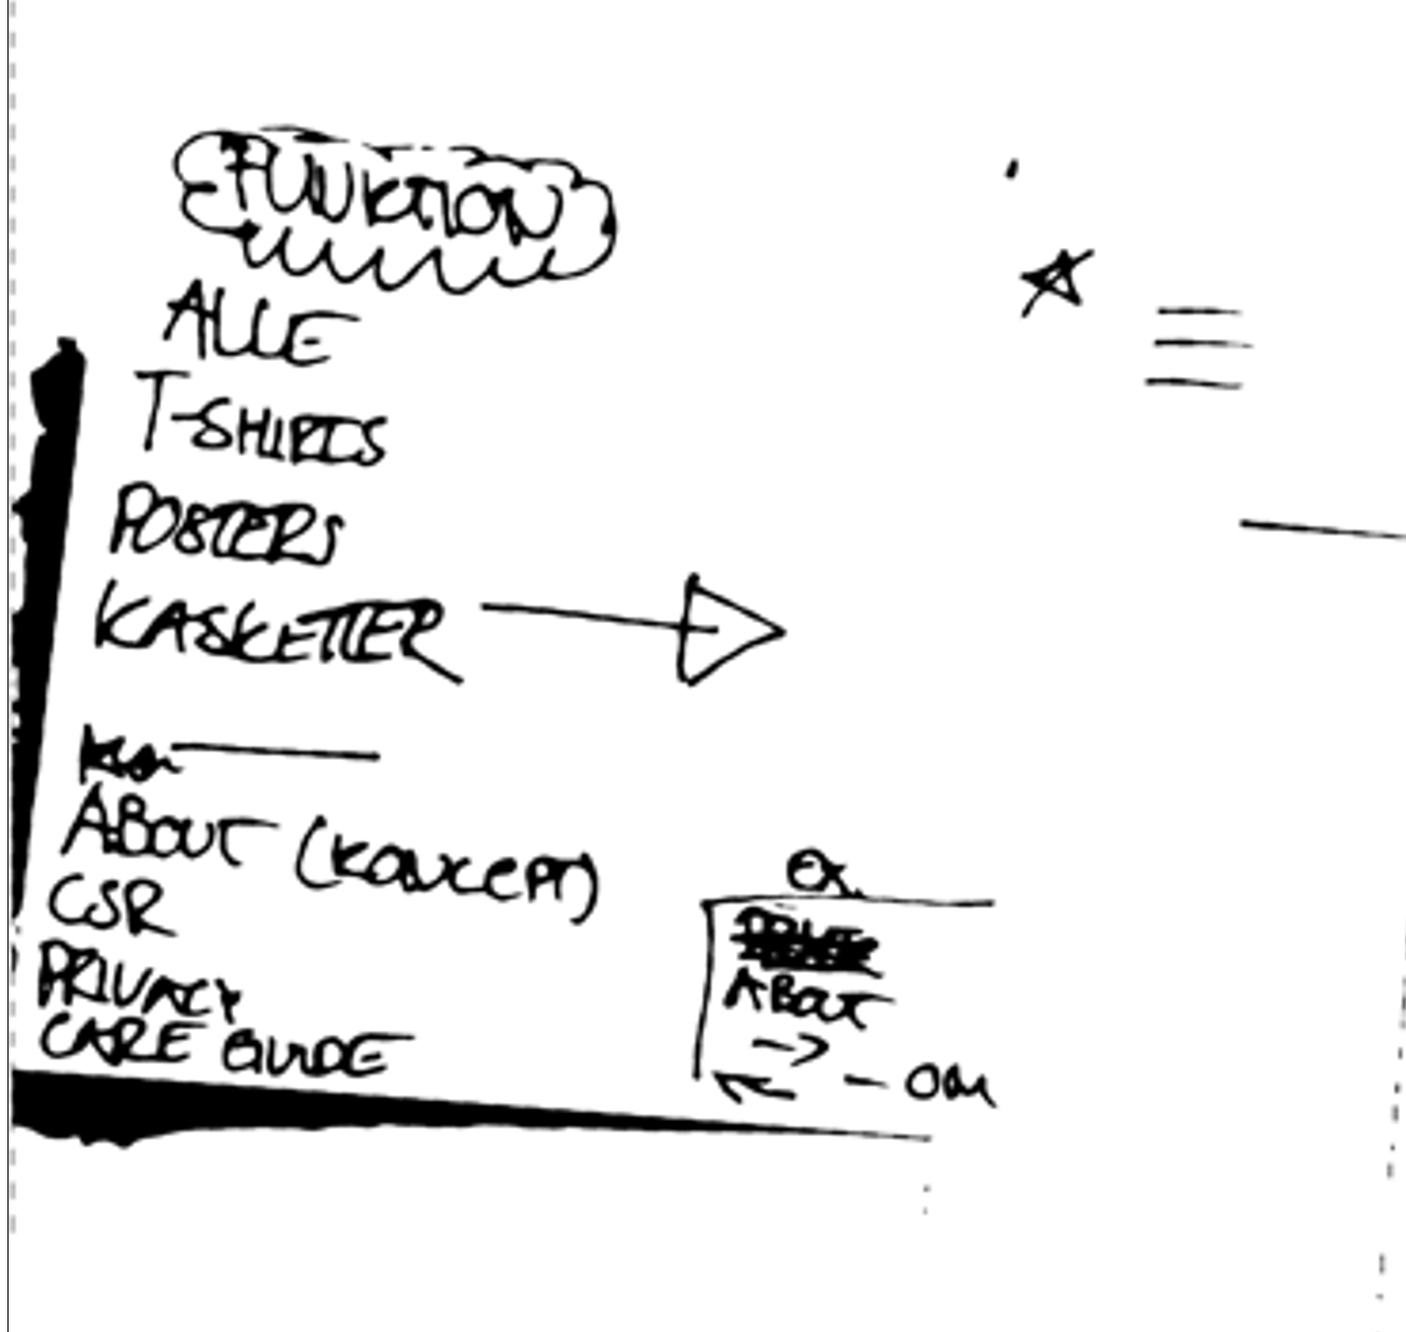 FUNKTION
ALLE
T-SHIRTS
POSTERS
KASKETTER
ABOUT (KONCEPT)
CSR
PRIVACY
CARE GUIDE
EX.
ABOUT
- OM